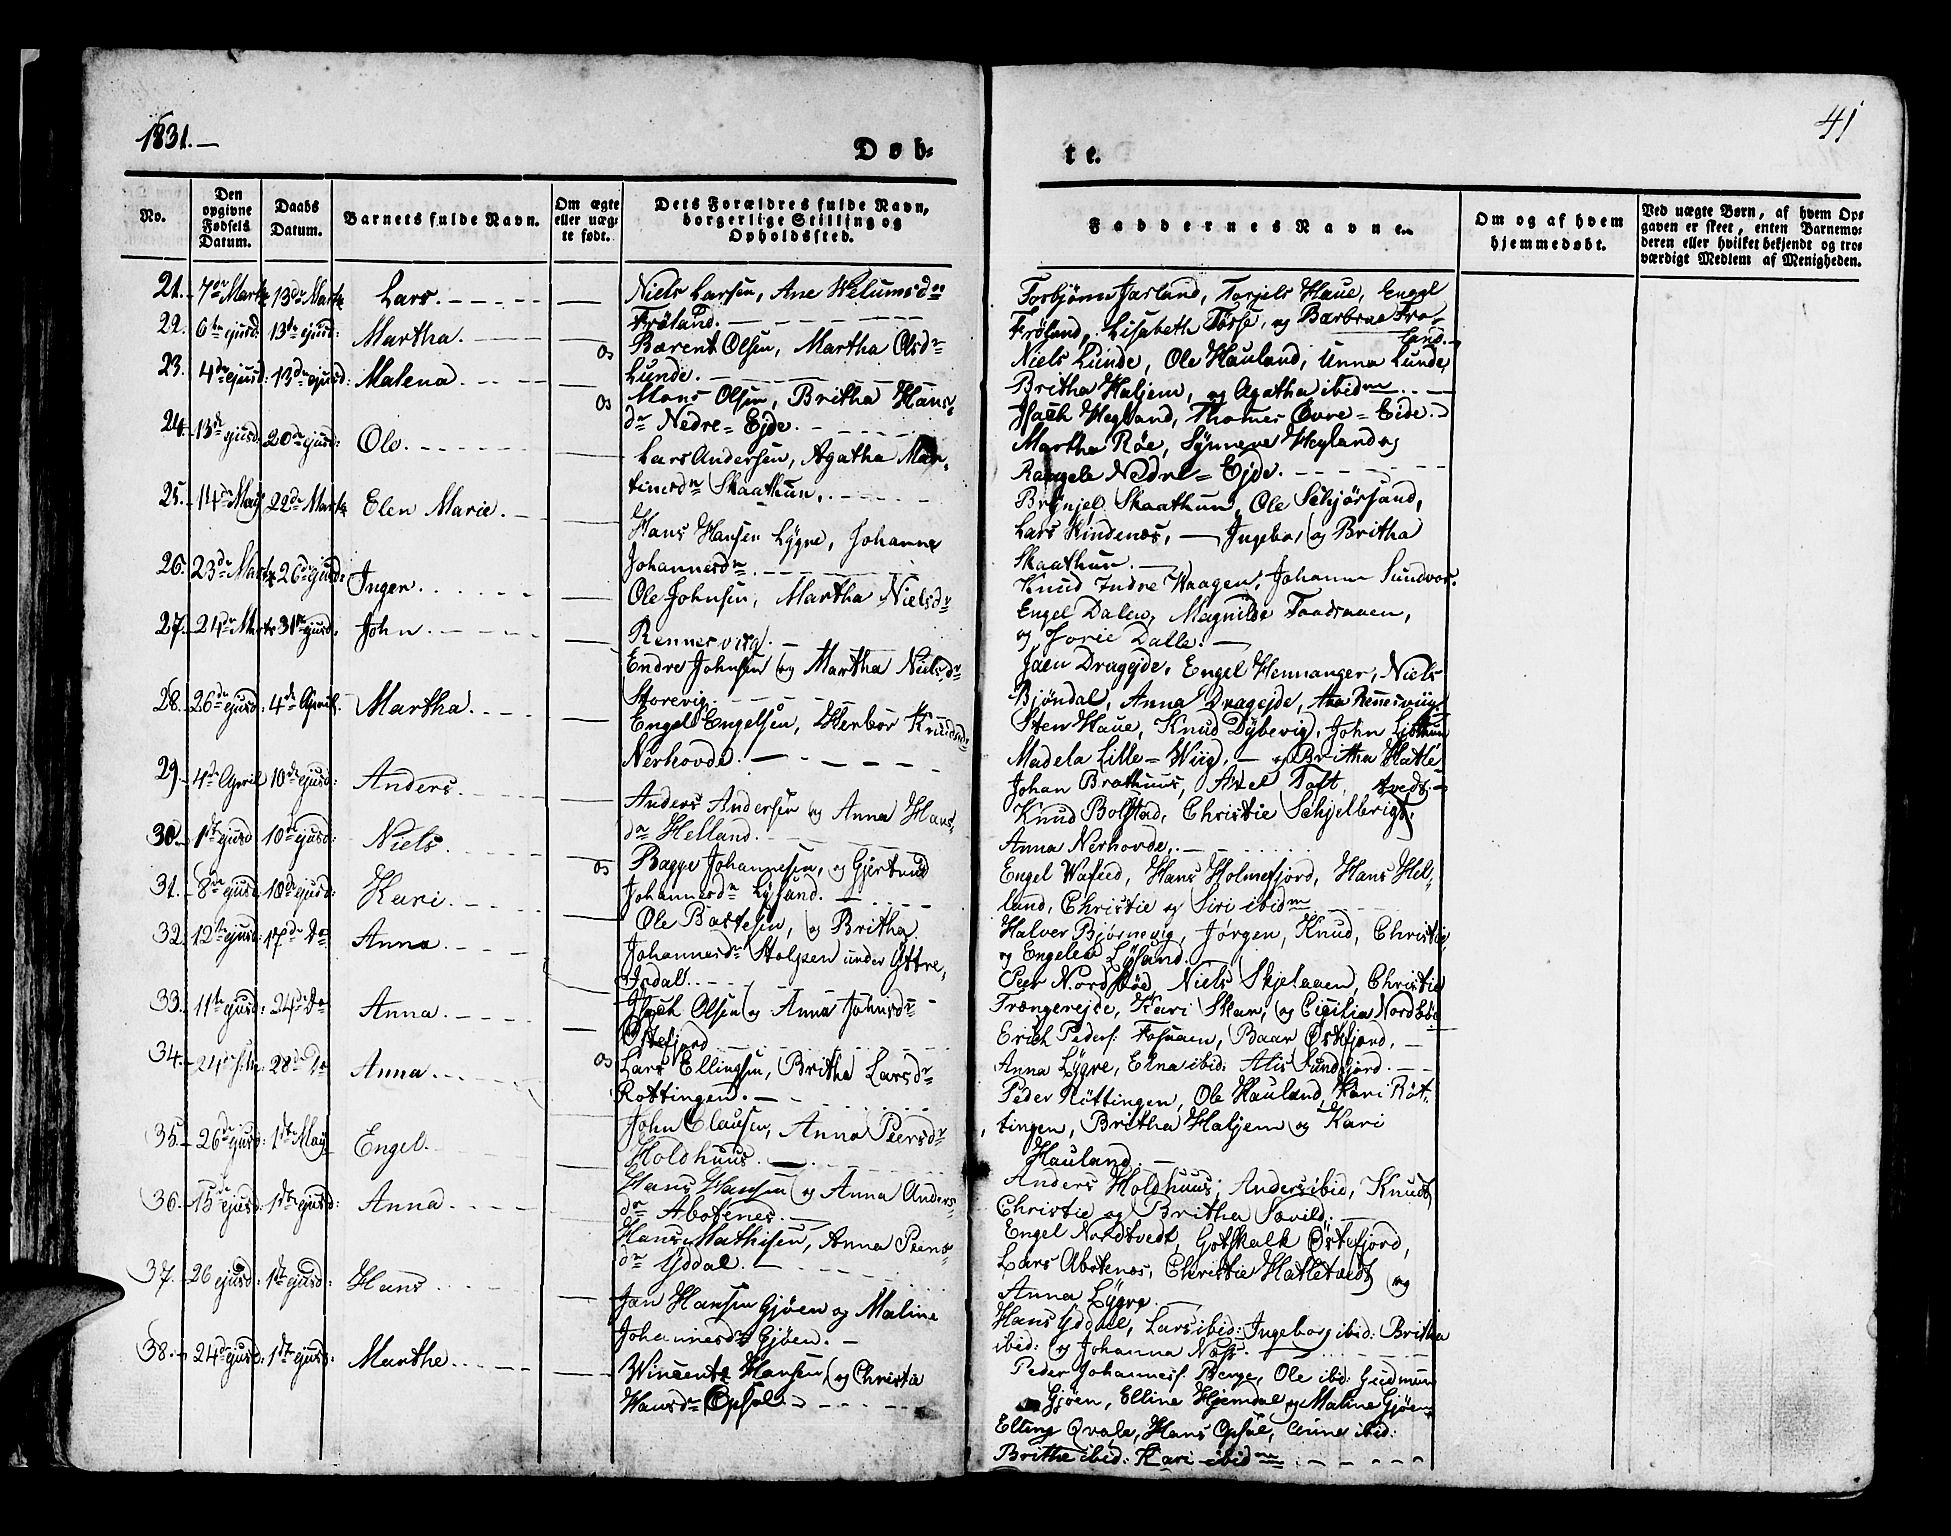 1831.—
Døb-
te.
41
No.
Den opgivne Fødsels Datum.
Daabs Datum.
Barnets fulde Navn.
Om ægte eller uægte født.
Dets Forældres fulde Navn, borgerlige Stilling og Opholdssted.
Faddernes Navne.
Om og af hvem hjemmedøbt.
Ved uægte Børn, af hvem Opgaven er skeet, enten Barnemoderen eller hvilket bekjendt og troværdigt Medlem af Menigheden.
21. 7de Martz 13de Martz Lars. — Niels Larsen, Ane Welumsdr
Frøland.
22. 6te ejusd: 13de ejusd: Martha. — Os Bærent Olsen, Martha Olsdr
Lunde.
23. 4de ejusd: 13de ejusd: Malena — Os Mons Olsen, Britha Hans
dr Nedre=Ejde.
24. 13de ejusd: 20de ejusd: Ole. — Lars Andersen, Agatha Mar-
tinsdr Skaathun.
25. 14de 22de Martz Elen Marie. — Hans Hansen Lygre, Johanne
Johannesdr
26. 23de Martz 26de ejusd: Inger. — Ole Johnsen, Martha Nielsdr
Rennesvig.
27. 21de Martz 31te ejusd: John. — Endre Johnsen og Martha Nielsdr
Storevig.
28. 26de ejusd: 4de April. Martha. — Engel Engelsen, Herbor Knudsdr
Nerhovde.
29. 4de April 10de ejusd: Anders. — Anders Andersen og Anna Hans
dr Helland.
30. 1ste ejusd 10de ejusd: Niels. — Os Bagge Johannesen, og Gjertrud
Johannesdr Lysand.
31. 8de ejusd: 10de ejusd: Kari. — Ole Bastesen, og Britha
Johannesdr Stolpen under Yttre
Isdal.
32. 12te ejusd: 17de do Anna. — Isach Olsen og Anna Johnsdr
Østefjord
33. 11te ejusd: 24de do Anna. — Os Lars Ellingsen, Britha Larsdr
Rottingen.
34. 28de do Anna. — John Clausen, Anna Peersdr
Holdhuus.
35. 26de ejusd: 1ste May Engel. — Hans Hansen og Anna Anders
dr Abotenes.
36. 15de ejusd: 1ste ejusd: Anna. — Hans Mathisen, Anna Peers
dr Yddal.
37. 26 ejusd: 1ste ejusd: Hans — Jan Hansen Gjøen og Maline
Johannesdr Gjøen.
38. 24de ejusd: 1ste ejusd: Marthe. — Wincentz Hansen og Christe
Hansdr Opsal.
Torbjørn Jarland, Torjels Haue, Engel
Frøland, Lisabeth Tøsse, og Barbrae Frø-
land.
Niels Lunde, Ole Hauland, Anna Lunde
Britha Haljem, og Agatha ibidm
Isach Hegland, Thomes Øvre=Eide.
Martha Røe, Synneve Hegland og
Raagele Nedre=Ejde.
Brynjel Skaathun, Ole Schjørsand,
Lars Hindenæs, — Ingebor, og Britha
Skaathun.
Knud Indre Waagen, Johann Sundvor.
Engel Dalen, Magnilde Taadraaen,
og Jorie Dalle.
Jaen Dragejde, Engel Hennanger, Niels
Bjøndal, Anna Dragejde, Renesviig
Sten Haue, Knud Dybevig, John
Madela Lille=Wiig, — og Britha Hatle-
tvedt.
Johan Brathuus, Axel Toft,
Knud Bolstad, Christie Schjelbrigt,
Anna Nerhovde.
Engel Hans Holmefjord, Hans Hel-
land, Christie og Siri ibidm
Halver Bjørnevig, Jørgen, Knud, Christie
og Engelen Lysand.
Peer Nordbøe, Niels Skjelaaen, Christie
Trængereide, Kari Skar, og Cicilia Nordbøe
Erich Peders: Fosaaen, Baar Østefjord,
Anna Lygre, Elna ibid: Alis Sundfjord.
Peder Røttingen, Ole Hauland, Kari Røt-
tingen, Britha Haljem og Kari
Hauland.
Anders Holdhuus, Anders ibid, Knudt
Christie og Britha Sævild.
Engel Nordtvedt, Gotskalk Østefjord,
Lars Abotenes, Christie Hatletvedt og
Anna Lygre
Hans Yddale, Lars ibid: Ingeborg ibid: Britha
ibid: og Johanna Næss.
Peder Johanness: Berge, Ole ibid: Gudmun
Gjøen, Elline Hjemdal og Maline Gjøen.
Elling Qvale, Hans Opsal, Anne ibid:
Brithe ibid: Kari ibidm